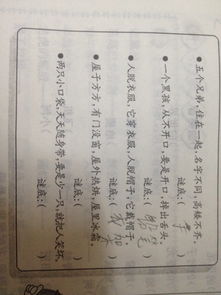 ●五个兄弟,住在一起,名字不同,高矮不齐。
谜底:(手)
●一个黑孩,从不开口,要是开口,掉出舌头。
谜底:( )
●人脱衣服,它穿衣服,人脱帽子,它戴帽子。
谜底:(衣架)
●屋子方方,有门没窗,屋外热烘,屋里冰霜。
谜底:( )
●两只小口袋,天天随身带,要是少一只,就把人笑坏。
谜底:( )